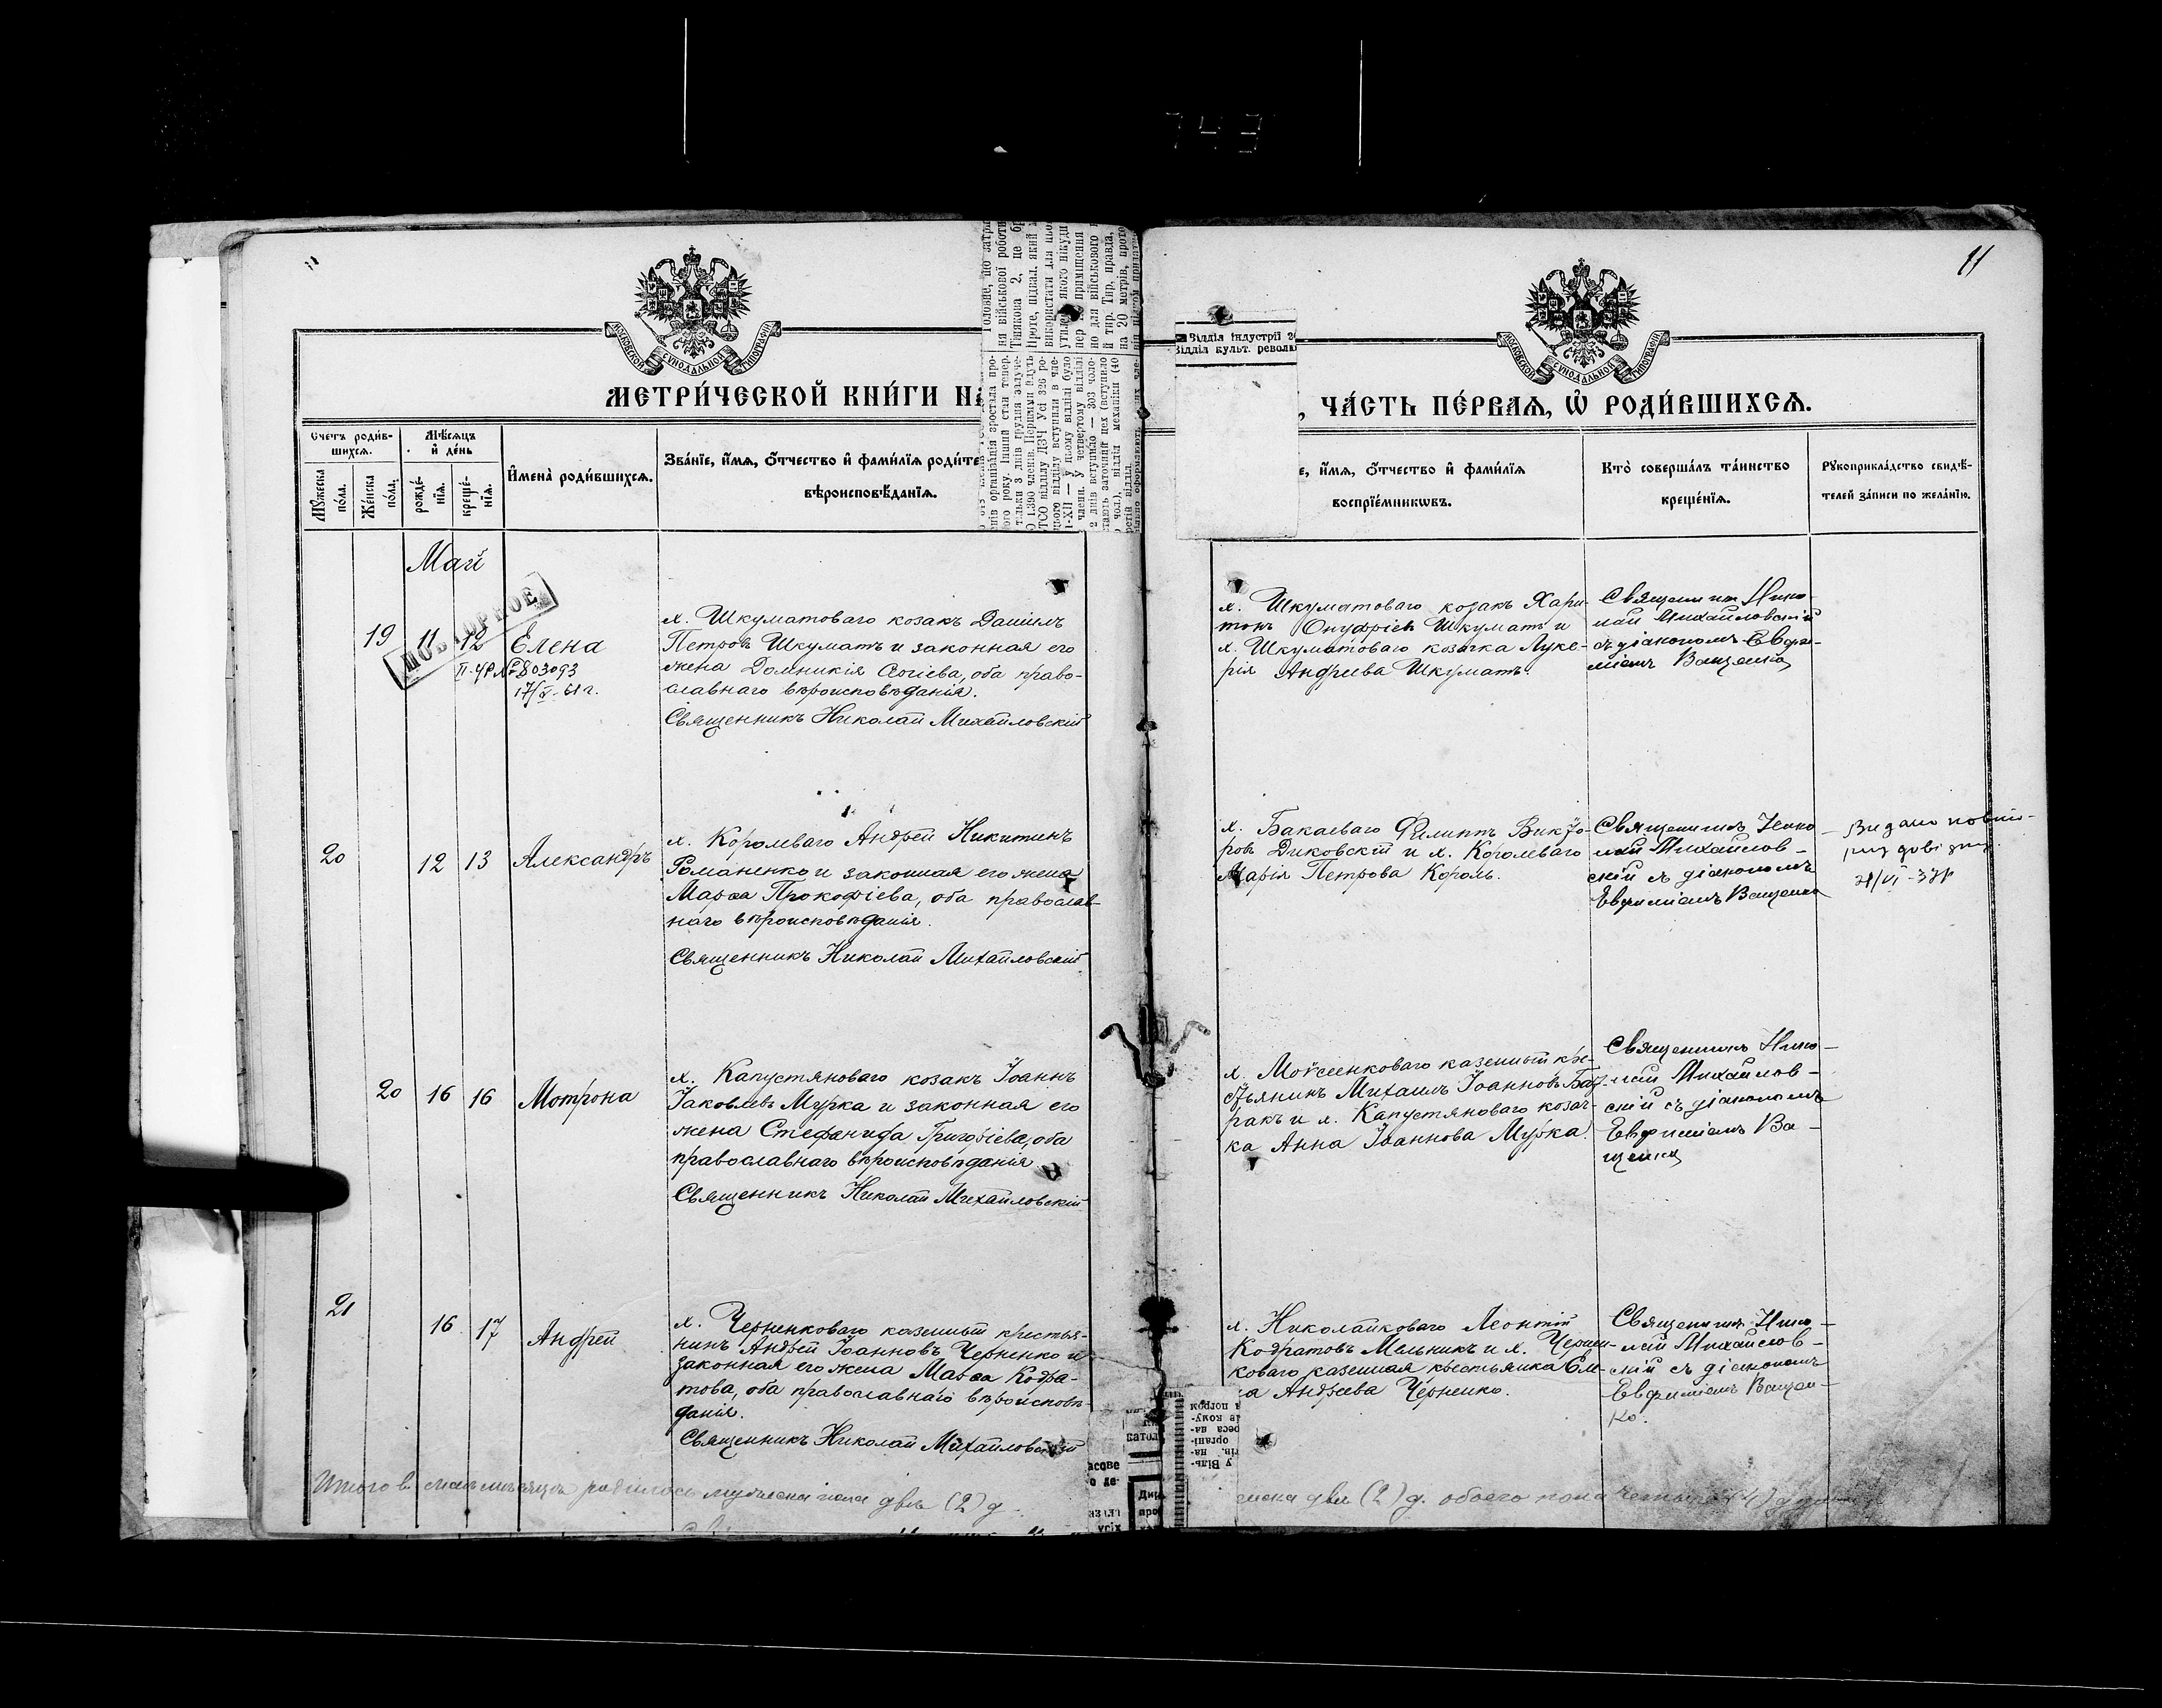 743
11
МОСКОВСКОЙ СѴНОДАЛЬНОЙ ТИПОГРАФІИ
МОСКОВСКОЙ СѴНОДАЛЬНОЙ ТИПОГРАФІИ
МЕТРИ́ЧЕСКОЙ КНИ́ГИ НА
, ЧА́СТЬ ПЕ́РВАЯ, Ѡ҆ РОДИ́ВШИХСЯ.
Счетъ роди́в-
шихся.
Мѣ́сяцъ
и҆ де́нь
Мꙋ́жеска
по́ла.
Же́нска
по́ла.
рожде́-
нїя.
креще́-
нїя.
И҆мена̀ роди́вшихся.
Зва́нїе, и҆́мя, ѻ҆́тчество и҆ фами́лїя роди́те
вѣроисповѣ́данїя.
е, и҆́мя, ѻ҆́тчество и҆ фами́лїя
воспрїе́мникѡвъ.
Кто̀ соверша́лъ та́инство
креще́нїя.
Рꙋкоприкла́дство свидѣ́-
телей за́писи по жела́нїю.
Відділ індустрії
Відділ культ. револю
Май
ПОВТОРНОЕ
19 11 12 Елена
803093
17/V-61 г.
х. Шкуматоваго козакъ Даніилъ
Петровъ Шкуматъ и законная его
жена Домникія Сергіева, оба право-
славнаго вѣроисповѣданія.
Священникъ Николай Михайловскій
х. Шкуматоваго козакъ Хари-
тонъ Онуфріевъ Шкуматъ и
х. Шкуматоваго козачка Луке-
рія Андреева Шкуматъ.
Священникъ Нико-
лай Михайловскій
съ діакономъ Евфи-
міемъ Ващенко
20 12 13 Александръ
х. Королеваго Андрей Никитинъ
Романенко и законная его жена
Марѳа Прокофіева, оба православ-
наго вѣроисповѣданія.
Священникъ Николай Михайловскій
х. Бакаеваго Филиппъ Викто-
ровъ Диковскій и х. Королеваго
Марія Петрова Король.
Священникъ Нико-
лай Михайлов-
скій съ діакономъ
Евфиміемъ Ващенко
Видано
20 16 16 Мотрона
х. Капустяноваго козакъ Іоаннъ
Іаковлевъ Мурка и законная его
жена Стефанида Григоріева, оба
православнаго вѣроисповѣданія
Священникъ Николай Михайловскій
х. Мойсеенковаго казенный кре-
стьянинъ Михаилъ Іоанновъ Бод-
ракъ и х. Капустяноваго козач-
ка Анна Іоаннова Мурка.
Священникъ Нико-
лай Михайлов-
скій съ діакономъ
Евфиміемъ Ва-
щенко
21 16 17 Андрей
х. Черненковаго казенный крестья-
нинъ Андрей Іоанновъ Черненко и
законная его жена Марѳа Кодра-
това, оба православнаго вѣроисповѣ-
данія.
Священникъ Николай Михайловскій
х. Николайковаго Леонтій
Кодратовъ Мельникъ и х. Чернен-
коваго казенная крестьянка Еле-
на Андреева Черненко.
Священникъ Нико-
лай Михайлов-
скій съ діакономъ
Евфиміемъ Ващен-
ко.
Итого въ маѣ мѣсяцѣ родилось мужеска пола двѣ (2) д.
женска двѣ (2) д. обоего пола четыре (4) д